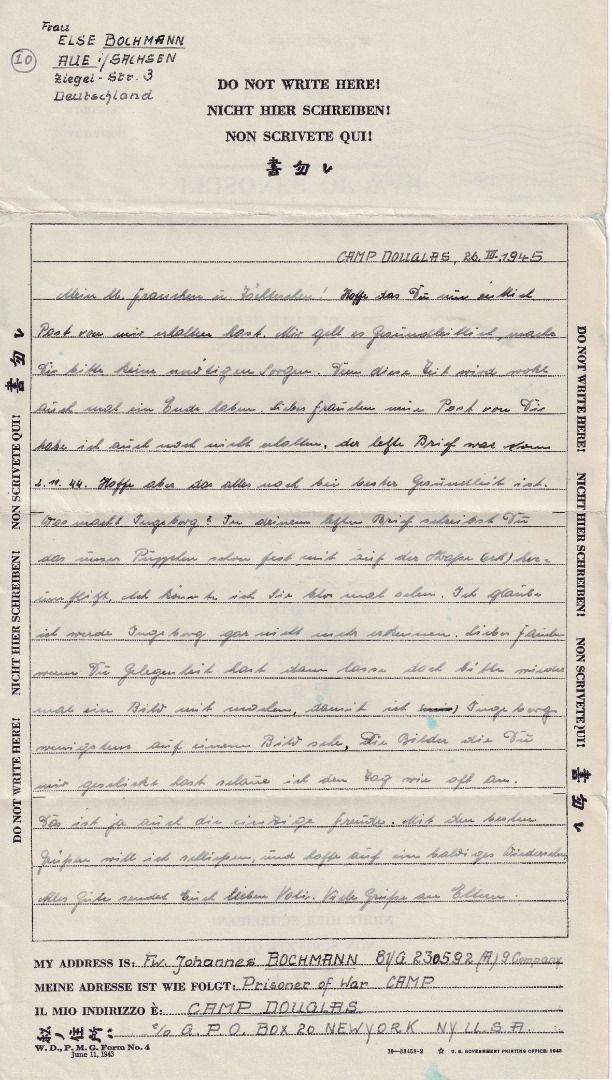 Frau
ELSE BOCHMANN
10
AUE i/SACHSEN
Ziegel-Str. 3
Deutschland
DO NOT WRITE HERE!
NICHT HIER SCHREIBEN!
NON SCRIVETE QUI!
書 勿 レ
CAMP DOUGLAS, 26. III. 1945
Mein lb. Frauchen u Töchterchen! Hoffe das Du nun endlich
Post von mir erhalten hast. Mir geht es Gesundheitlich, mache
Dir bitte keine unnötigen Sorgen. Denn diese Zeit wird wohl
auch mal ein Ende haben. Liebes Frauchen neue Post von Dir
habe ich auch noch nicht erhalten, der letzte Brief war vom
2.11.44. Hoffe aber das alles noch bei bester Gesundheit ist.
Was macht Ingeborg? In deinem letzten Brief schreibst Du
das unser Püppchen schon fest mit auf der Straße her=
umflitzt. Ach könnte ich Sie blos mal sehen. Ich glaube
ich werde Ingeborg gar nicht mehr erkennen. Liebes Frauchen
wenn Du Gelegenheit hast dann lasse doch bitte wieder
mal ein Bild mit machen, damit ich Ingeborg
wenigstens auf einem Bild sehe. Die Bilder die Du
mir geschickt hast schaue ich den Tag wie oft an.
Das ist ja auch die einzige Freude. Mit den besten
Grüßen will ich schließen, und hoffe auf ein baldiges Wiedersehen
Alles Gute sendet Euch lieben Vati. Viele Grüße an Eltern.
DO NOT WRITE HERE! NICHT HIER SCHREIBEN! NON SCRIVETE QUI! 書 勿 レ
DO NOT WRITE HERE! NICHT HIER SCHREIBEN! NON SCRIVETE QUI! 書 勿 レ
MY ADDRESS IS: Fw. Johannes BOCHMANN 81/G 230592 (A) 9 Company
MEINE ADRESSE IST WIE FOLGT: Prisoner of War CAMP
IL MIO INDIRIZZO È: CAMP DOUGLAS
私ノ住所: c/o G.P.O. BOX 20 NEW YORK NY U.S.A.
W. D., P. M. G. Form No. 4
June 11, 1943
16—33458-2 ☆ U. S. GOVERNMENT PRINTING OFFICE: 1943